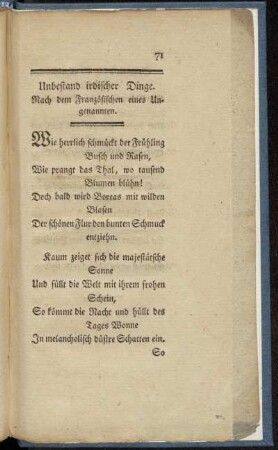 71
Unbestand irdischer Dinge.
Nach dem Französischen eines Un-
genannten.
Wie herrlich schmückt der Frühling
Busch und Rasen,
Wie prangt das Thal, wo tausend
Blumen blühn!
Doch bald wird Boreas mit wilden
Blasen
Der schönen Flur den bunten Schmuck
entziehn.
Kaum zeiget sich die majestätsche
Sonne
Und füllt die Welt mit ihrem frohen
Schein,
So kömmt die Nacht und hüllt des
Tages Wonne
In melancholisch düstre Schatten ein.
So